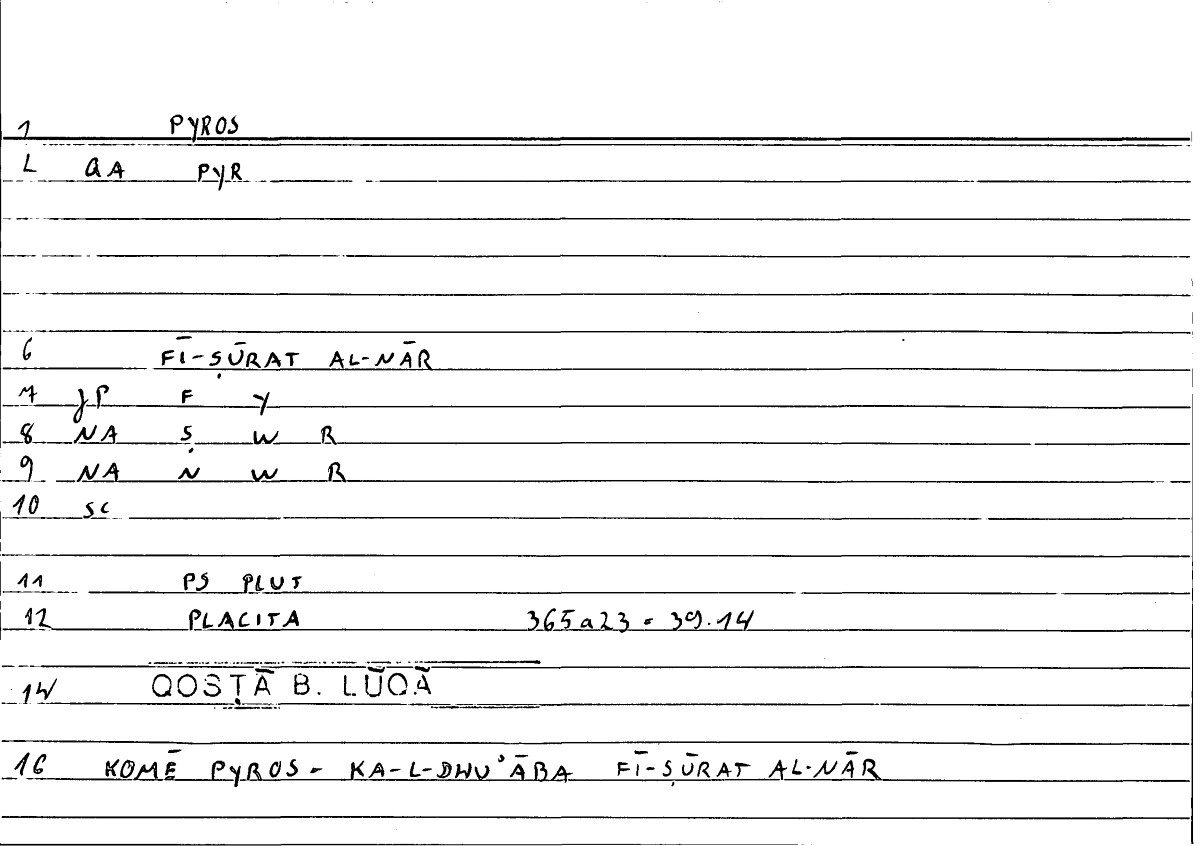 1 PYROS
L QA PYR
6 FĪ-ṢŪRAT AL-NĀR
7 JP F Y
8 NA Ṣ W R
9 NA N W R
10 SC
11 PS PLUT
12 PLACITA 365a23 = 39.14
14 QOSṬĀ B. LŪQĀ
16 KOMĒ PYROS - KA-L-DHU'ĀBA FĪ-ṢŪRAT AL-NĀR